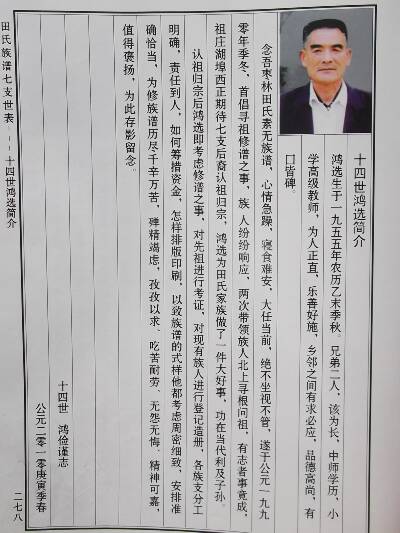 十四世鸿选简介
鸿选生于一九五五年农历乙未季秋。兄弟二人，该为长，中师学历，小
学高级教师，为人正直，乐善好施，乡邻之间有求必应，品德高尚，有
口皆碑。
念吾枣林田氏素无族谱，心情急躁，寝食难安，大任当前，绝不坐视不管，遂于公元一九九
零年季冬，首倡寻祖修谱之事，族人纷纷响应，两次带领族人北上寻根问祖，有志者事竟成，
祖庄湖埠西正期待七支后裔认祖归宗，鸿选为田氏家族做了一件大好事，功在当代利及子孙。
认祖归宗后鸿选即考虑修谱之事，对先祖进行考证，对现有族人进行登记造册，各族支分工
明确，责任到人，如何筹措资金，怎样排版印刷，以致族谱的式样他都考虑周密细致，安排准
确恰当，为修族谱历尽千辛万苦，殚精竭虑，孜孜以求、吃苦耐劳、无怨无悔、精神可嘉，
值得褒扬，为此存影留念。
十四世 鸿俭谨志
公元二零一零庚寅季春
田氏族谱七支世表——十四世鸿选简介
二七八